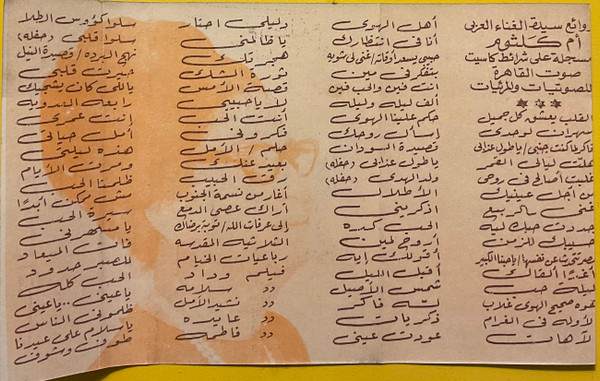 روائع سيدة الغناء العربى
أم كلثوم
مسجلة على شرائط كاسيت
صوت القاهرة
للصوتيات والمرئيات
***
القلب يعشق كل جميل
سهران لوحدى
فاكر لما كنت جنبى / ياطول عذابى
هلت ليالى القمر
غلبت أصالح فى روحى
من أجل عينيك
غنى الربيع
جددت حبك ليه
حسيبك للزمن
عن نفسها / ياحبنا الكبير
أغدًا ألقاك
ليلة حب
هوه صحيح الهوى غلاب
الأوله فى الغرام
الآهات
أهل الهوى
أنا فى انتظارك
حبيبى يسعد أوقاته / غنى لى شويه
بتفكر فى مين
انت فين والحب فين
ألف ليله وليله
حكم علينا الهوى
اسأل روحك
قصيدة السودان
ياطول عذابى (حفله)
ولد الهدى (حفله)
الأطلال
اذكرينى
الحب كده
أروح لمين
أقولك إيه
أقبل الليل
شمس الأصيل
لسه فاكر
ذكريات
عودت عينى
دليلى احتار
يا ظالمنى
هجرتك
ثورة الشك
قصة الأمس
لا يا حبيبى
أنت الحب
فكرونى
حلم / الأمل
بعيد عنك
رق الحبيب
أغار من نسمة الجنوب
أراك عصى الدمع
إلى عرفات الله / توبة برضاك
الثلاثيه المقدسه
رباعيات الخيام
فيلم وداد
" سلامه
" نشيد الأمل
" عايده
" فاطمه
سلوا كؤوس الطلا
سلوا قلبى (حفله)
نهج البرده / قصيدة النيل
حيرت قلبى
ياللى كان يشجيك
رابعه العدويه
إنت عمرى
أمل حياتى
هذه ليلتى
ومرت الأيام
ظلمنا الحب
مش ممكن أبدًا
سيرة الحب
يا مسهرنى
فات الميعاد
للصبر حدود
الحب كله
ياعينى .. ياعينى
ظلمونى الناس
ياسلام على عيدنا
طوف وشوف